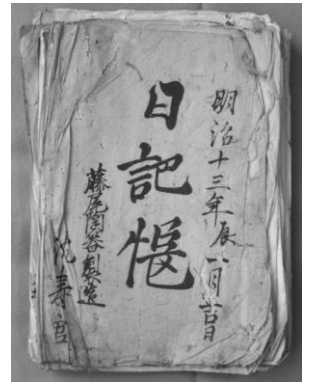 明治十三年辰一月吉日
日記帳
藤尾陶器製造
沈寿官